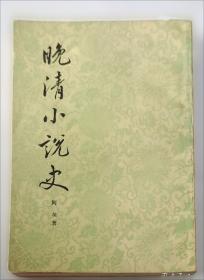 晚清小説史
阿英著